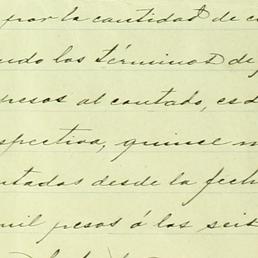 por la cantidad de c
ndo los términos de
pesos al contado, es d
spectiva, quince m
ntados desde la fech
mil pesos á los seis